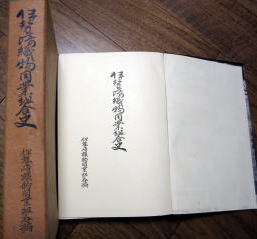 伊勢崎織物同業組合史
伊勢崎織物同業組合編
伊勢崎織物同業組合史
伊勢崎織物同業組合編